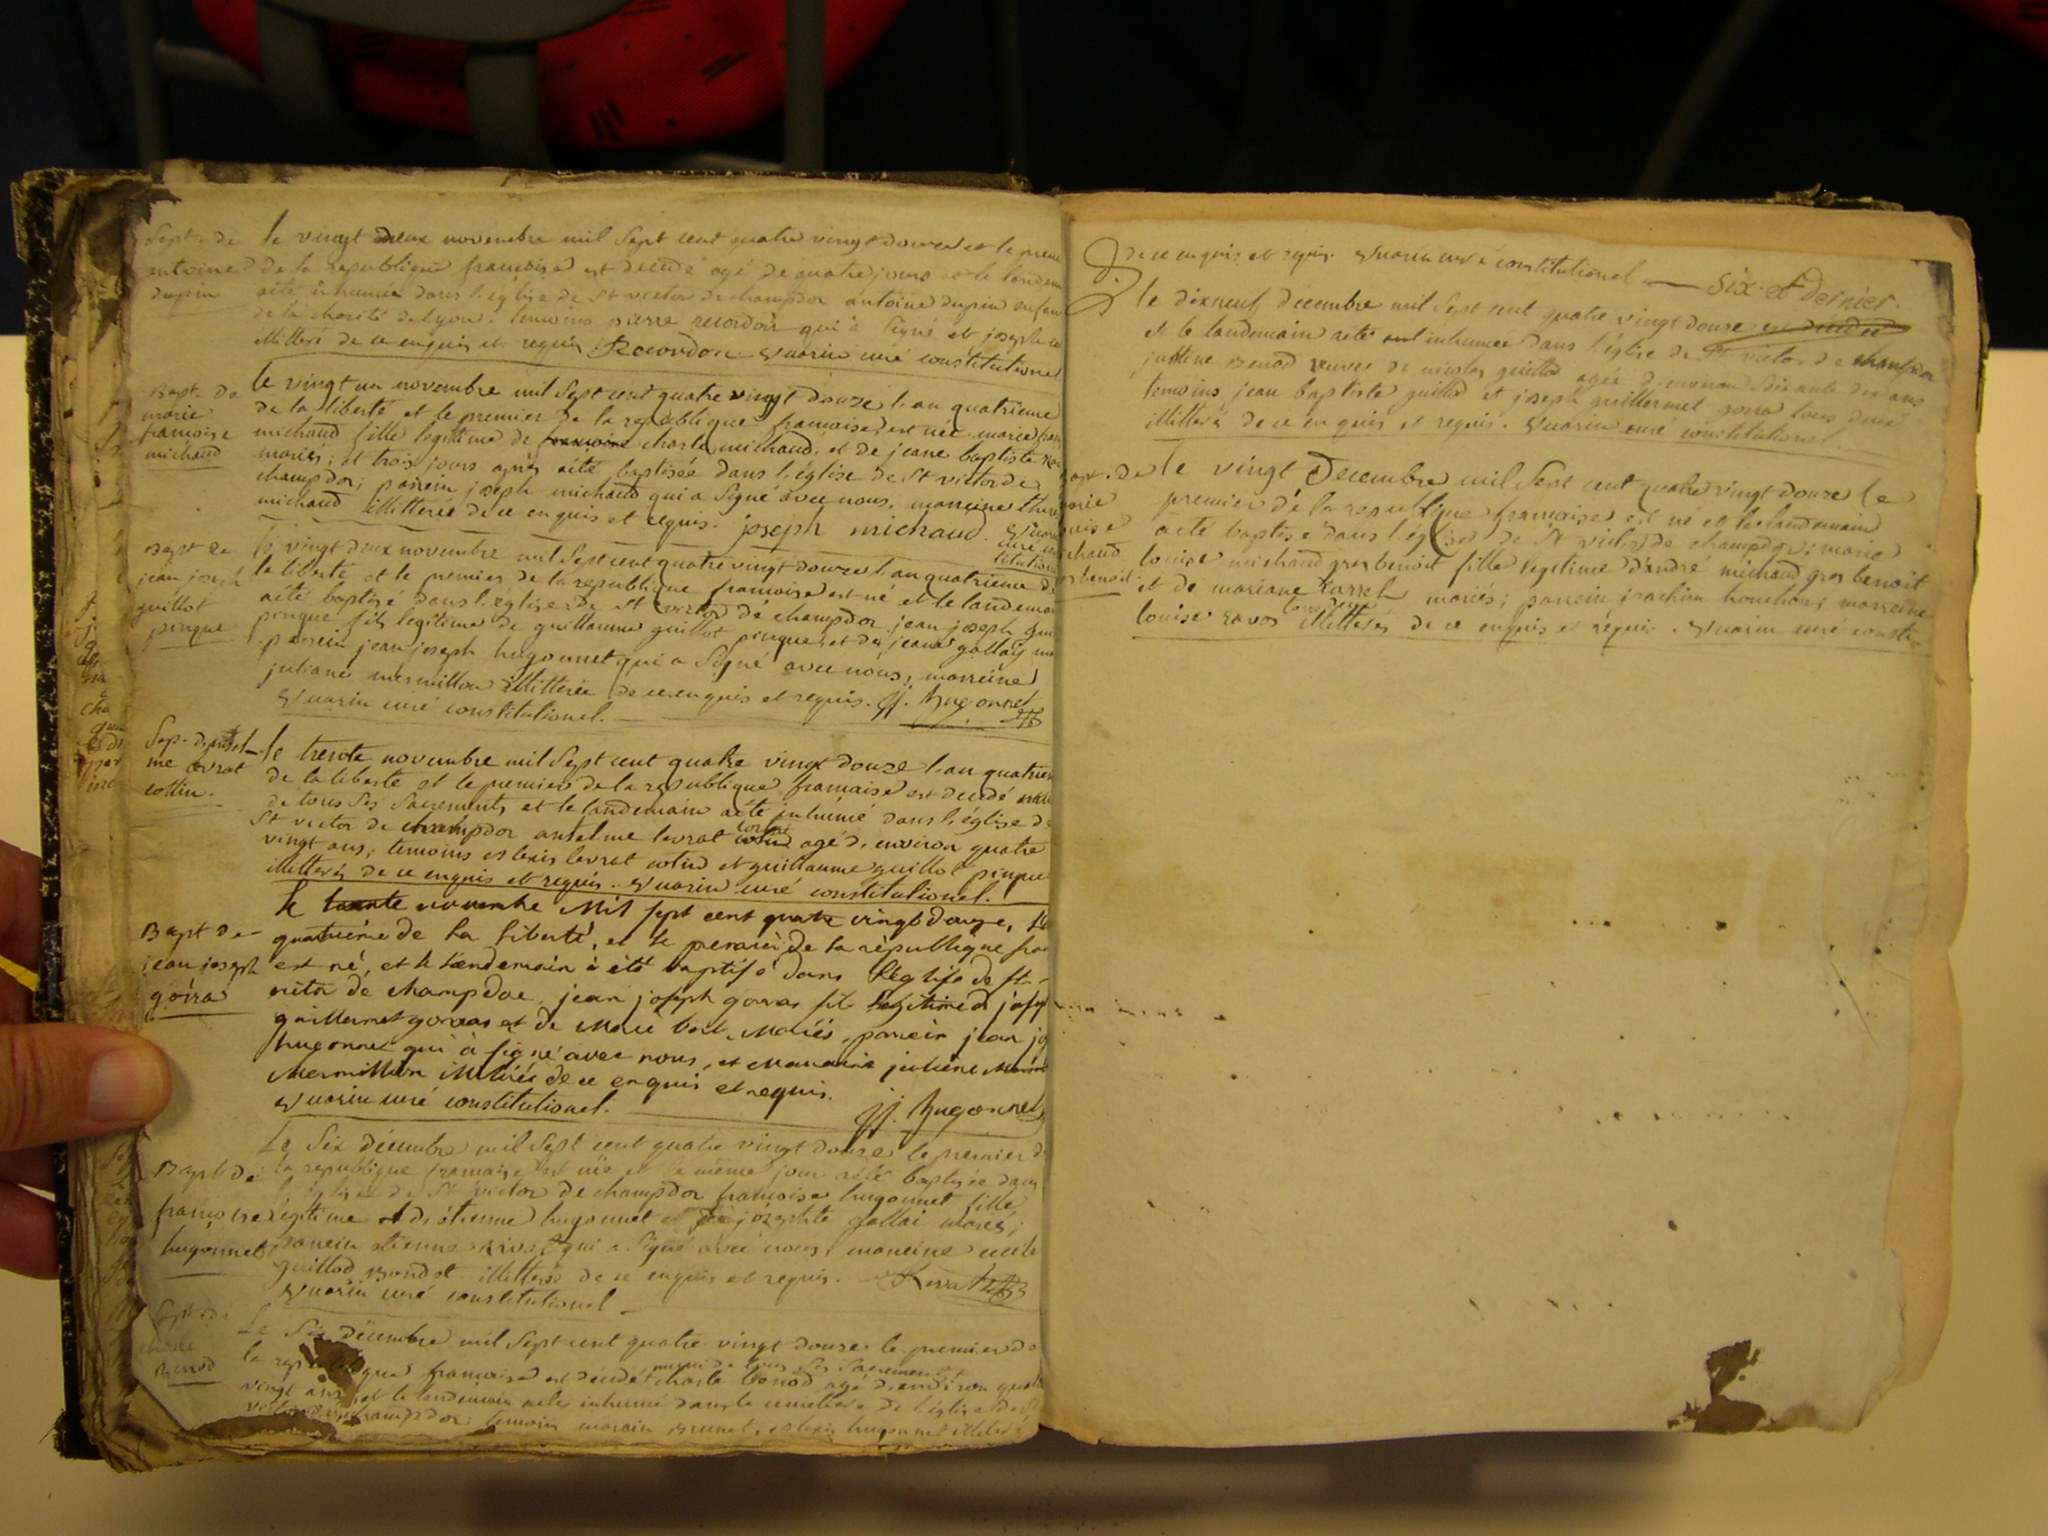 Sept. de
antoine
dupin
le vingt deux novembre mil sept cent quatre vingt douze et le premie
de la republique francoise est decedé agé de quatre jours et le landem
aété inhumée dans l'église de St victor de champdor antoine dupin enfan
de la charité de lyon. temoins pierre recordon qui à signé et joseph
illitteré de ce enquis et requis Recordon Quarin curé constitutionel
Bapt. de
marie
francoise
michaud
le vingt un novembre mil sept cent quatre vingt douze l'an quatrieme
de la liberté et le premier de la republique francoise, est née marie fran
michaud fille legitime de charle michaud, et de jeane baptiste
mariés; et trois jours après aété baptisée dans l'église de St victor de
champdor; parrein joseph michaud qui a signé avec nous, marreine there
michaud illitterée de ce enquis et requis. joseph michaud. Quarin
curé
titutionel
Bapt de
jean joseph
guillot
pinque
le vingt deux novembre mil sept cent quatre vingt douze l'an quatrieme de
la liberté et le premier de la republique francoise est né et le landemain
aété baptisé dans l'église de St victor de champdor jean joseph gui
pinque fils legitime de guillaume guillot pinque, et de jeane gallay ma
parrein jean joseph hugonnet qui a signé avec nous, marreine
juliane mermillon illitterée de ce enquis et requis. jj. hugonnet
Quarin curé constitutionel.
Sep. d'ansel-
me levrat
cottin.
le trente novembre mil sept cent quatre vingt douze l'an quatriem
de la liberté et le premier de la republique francaise est decedé muni
de tous ses sacrements et le landemain aété inhumé dans l'église de
St victor de champdor anselme levrat cottin agé d'environ quatre
vingt ans; temoins alexis levrat cotin et guillaume guillot pinque
illitterés de ce enquis et requis. Quarin curé constitutionel.
Bapt de
jean joseph
gorra
le trente novembre mil sept cent quatre vingt douze, l'an
quatrieme de la liberté, et le premier de la république fran
est né, et le landemain à été baptisé dans l'église de st.
victor de champdor, jean joseph gorras fils legitime de joseph
guillermet gorras et de Marie Mariés, parrein jean jo
hugonnet qui à signé avec nous, et Marreine juliene
Mermillion illitérée de ce enquis et requis.
Quarin curé constitutionel. jj. hugonnet
Bapt de
francoise
hugonnet
Le Six décembre mil sept cent quatre vingt douze le premier de
la republique francaise est née et le même jour aété baptisée dans
l'église de St victor de champdor francoise hugonnet fille
legitime d'étienne hugonnet et de josephte gallai mariés;
parrein étienne rivat qui a signé avec nous, marreine cecile
guillod Bondet illitterée de ce enquis et requis. Rivat
Quarin curé constitutionel
Sept. de
charle
Benod
Le Six décembre mil sept cent quatre vingt douze le premier de
la republique francoise est décédé charle benod agé d'environ quatre
muni de tous ses sacrements
vingt ans et le landemain aété inhumé dans le cimetiere de l'église de St
victor de champdor; temoins Brunet, alexis hugonnet illiterés
de ce enquis et requis. Quarin curé constitutionel. — six et dernier.
le dixneuf décembre mil sept cent quatre vingt douze est décédée
et le landemain aété inhumée dans l'église de St victor de champdor
justine Benod veuve de nicolas guillod agée d'environ soixante dix ans
temoins jean baptiste guillod et joseph guillermet gorra tous deux
illitterés de ce enquis et requis. Quarin curé constitutionel.
Bapt. de
marie
louise
michaud
gros benoit.
le vingt Decembre mil sept cent quatre vingt douze le
premier de la republique francoise, est né et le landemain
aété baptisé dans l'église de St victor de champdor; marie
louise michaud gros benoit fille legitime d'andré michaud gros benoit
et de mariane Carrel mariés; parrein joachim bouchon; marreine
tous deux
louise ravos illitterés de ce enquis et requis. Quarin curé consti-